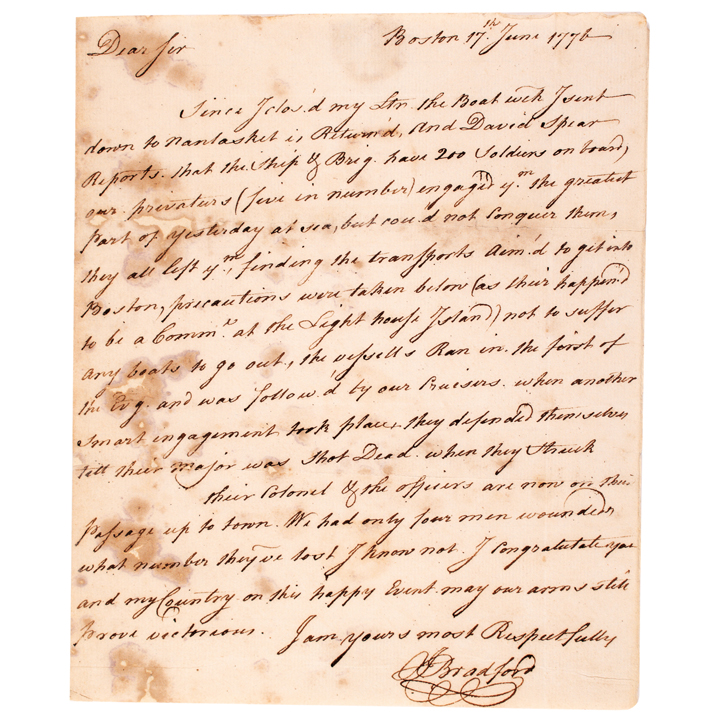 Boston 17th June 1776
Dear Sir
Since I clos'd my Ltr. the Boat wch I sent
down to Nantasket is Return'd, And David Spear
Reports. that the Ship & Brig. have 200 Soldiers on board,
our privatiers (five in number) engag'd ym. the greatest
part of yesterday at sea, but cou'd not Conquer them,
they all left ym., finding the transports Aim'd to get into
Boston, precautions were taken below (as their happen'd
to be a Commee. at the Light house Island) not to suffer
any boats to go out, the vessells Ran in the first of
the Evg. and was follow'd by our Cruisers. when another
smart engagement took place, they defended themselves
till their major was Shot Dead. when they Struck
their Colonel & the officers are now on their
Passage up to town. We had only four men wounded,
what number they've lost I know not. I Congratulate you
and my Country on this happy Event may our arms still
prove victorious. I am yours most Respectfully
J Bradford